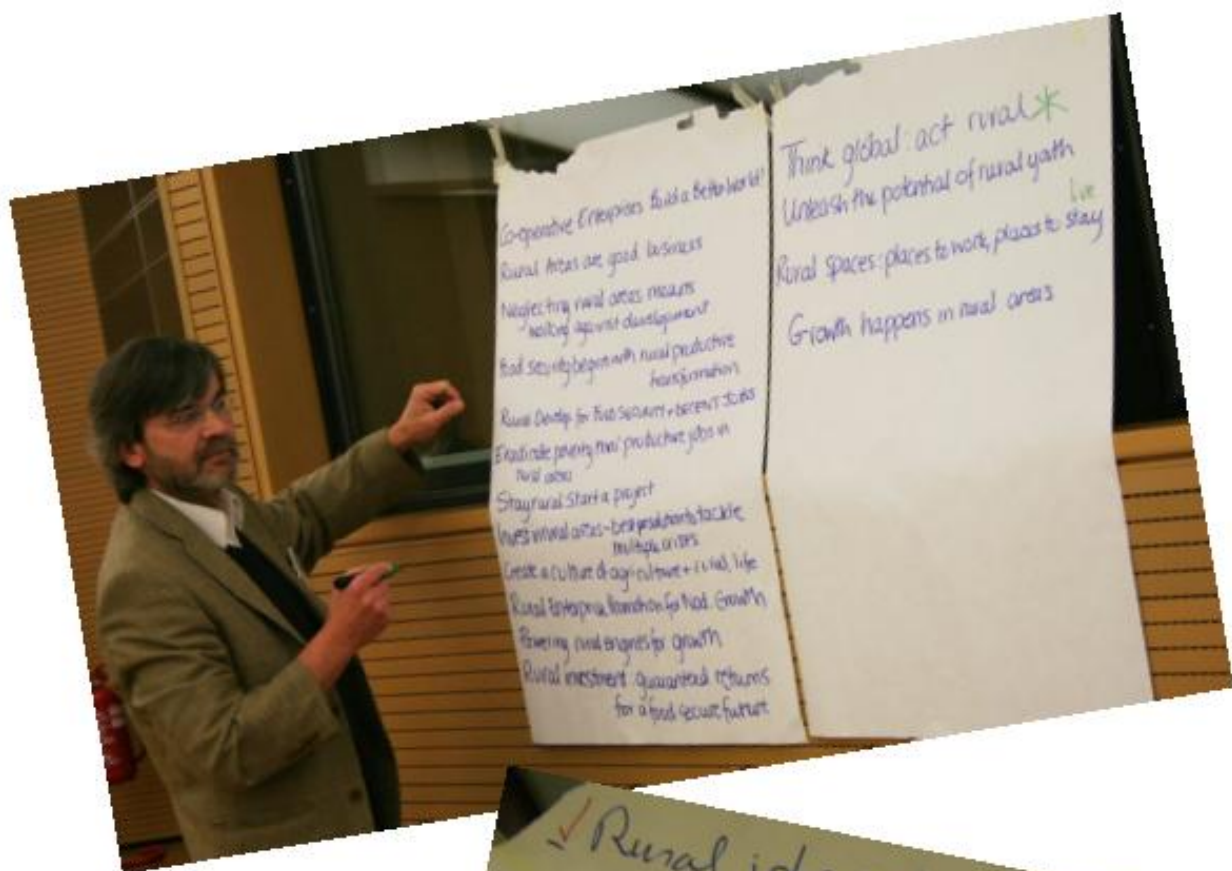 Co-operative Enterprises build a better world!
Rural Areas are good business
Neglecting rural areas means
working against development
Food security begins with rural productive
transformation
Rural Develop for Food Security + Decent Jobs
Eradicate poverty thru' productive jobs in
rural areas
Stay rural Start a project
Invest in rural areas - best to tackle
multiple crises
Create a culture of agriculture + rural life
Rural Enterprise Promotion for Nat. Growth
Powering rural engines for growth
Rural investment guaranteed returns
for a food secure future
Think global: act rural *
Unleash the potential of rural youth
live
Rural Spaces: places to work, places to stay
Growth happens in rural areas
Rural